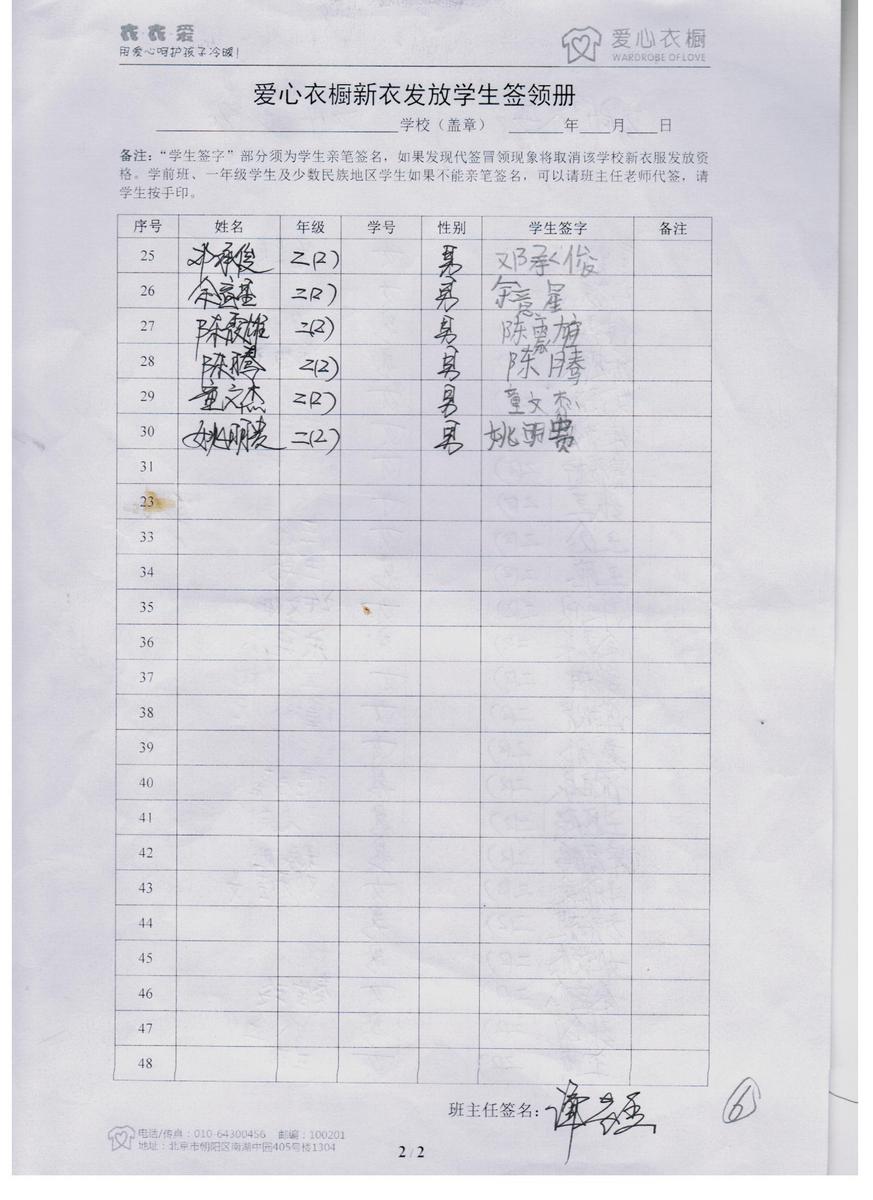 衣衣爱
用爱心呵护孩子冷暖!
爱心衣橱
WARDROBE OF LOVE
爱心衣橱新衣发放学生签领册
学校（盖章） 年 月 日
备注：“学生签字”部分须为学生亲笔签名，如果发现代签冒领现象将取消该学校新衣服发放资
格。学前班、一年级学生及少数民族地区学生如果不能亲笔签名，可以请班主任老师代签，请
学生按手印。
序号 姓名 年级 学号 性别 学生签字 备注
25 邓承俊 二(2) 男 邓承俊
26 二(2) 男
27 陈霞雄 二(2) 男 陈 雄
28 陈腾 二(2) 男 陈腾
29 童文杰 二(2) 男 童文杰
30 姚明贵 二(2) 男 姚明费
31
23
33
34
35
36
37
38
39
40
41
42
43
44
45
46
47
48
班主任签名：
6
电话/传真：010-64300456 邮编：100201
地址：北京市朝阳区南湖中园405号楼1304
2 / 2